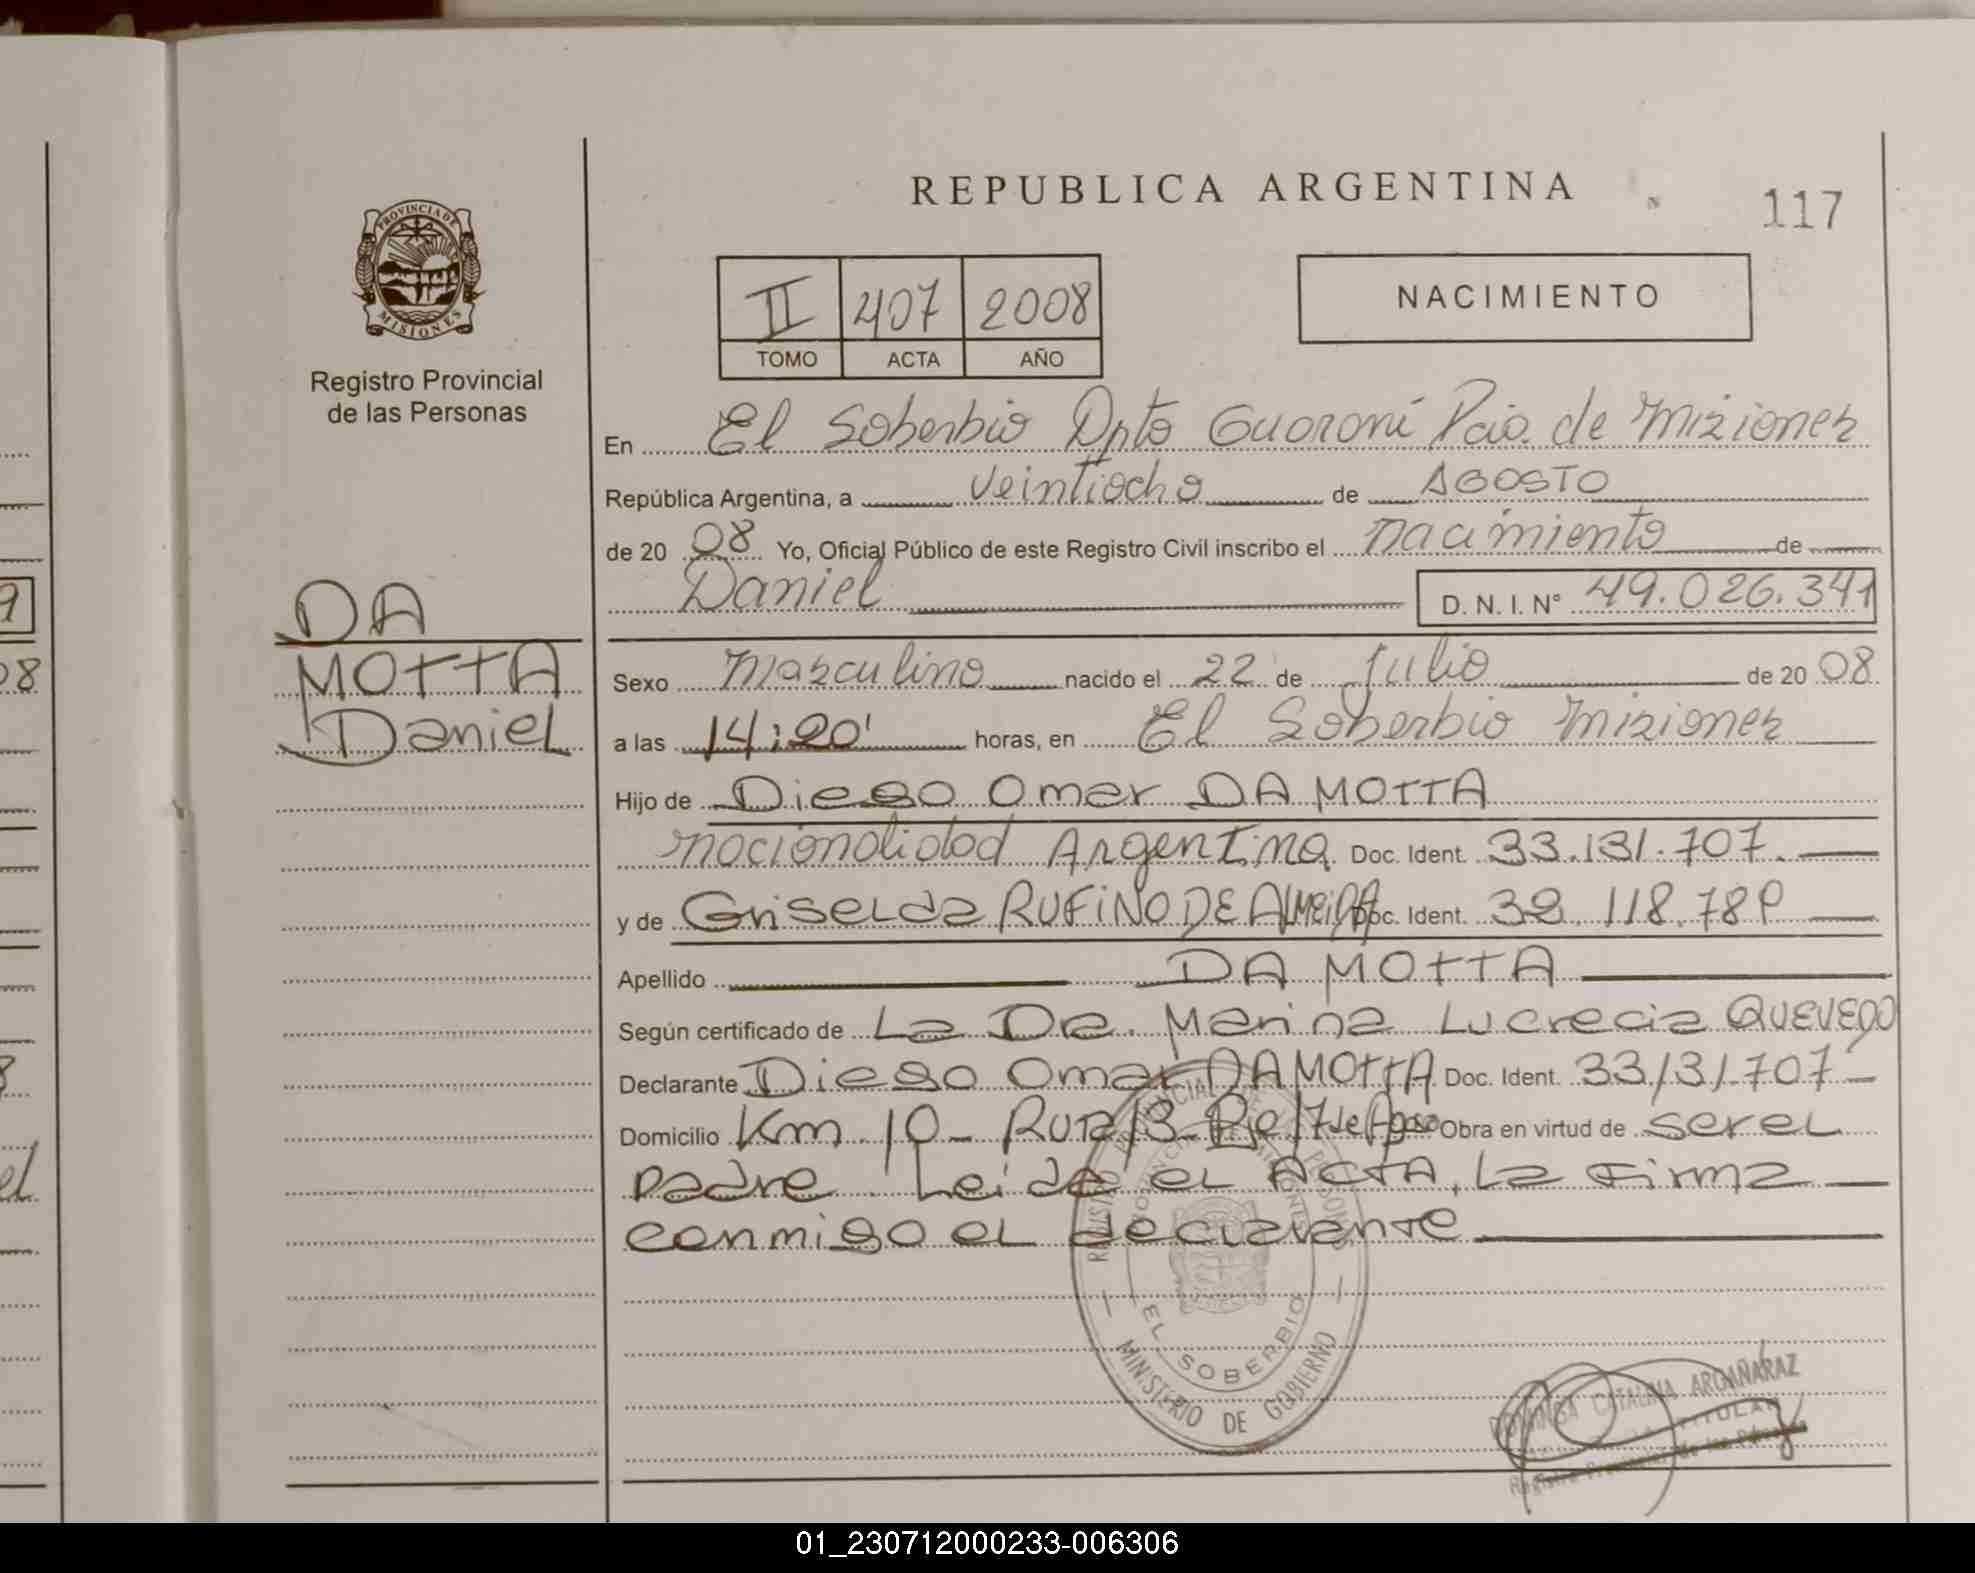 REPUBLICA ARGENTINA
117
PROVINCIA DE
MISIONES
Registro Provincial
de las Personas
II 407 2008
TOMO ACTA AÑO
NACIMIENTO
En El Soberbio Dpto Guaraní Pcia. de Misiones
República Argentina, a veintiocho de AGOSTO
de 20 08 Yo, Oficial Público de este Registro Civil inscribo el nacimiento de
Daniel D. N. I. Nº 49.026.341
DA
MOTTA
Daniel
Sexo masculino nacido el 22 de Julio de 20 08
a las 14:20' horas, en El Soberbio Misiones
Hijo de Diego Omar DA MOTTA
nacionalidad Argentina Doc. Ident. 33.131.707.
y de Griselda RUFINO DE ALMEIDA Doc. Ident. 32.118.789
Apellido DA MOTTA
Según certificado de La Dra. Marina Lucrecia QUEVEDO
Declarante Diego Omar DA MOTTA Doc. Ident. 33131.707
Domicilio Km 10 - Ruta 13 - Obra en virtud de ser el
padre Leida el ACTA, La firma
conmigo el declarante
EL SOBERBIO
MINISTERIO DE GOBIERNO
CATALINA ARGAÑARAZ
TITULAR
01_230712000233-006306